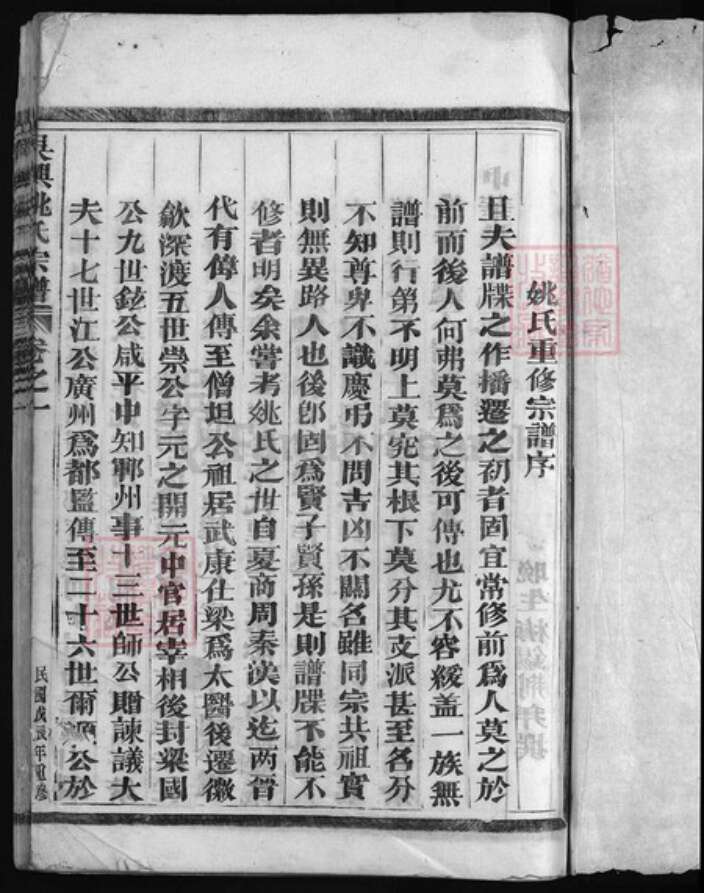 姚氏重修宗譜序
且夫譜牒之作播遷之初者固宜常修前爲人莫之於
前而後人何弗莫爲之後可傳也尤不容緩盖一族無
譜則行第不明上莫究其根下莫分其支派甚至名分
不知尊卑不識慶弔不問吉凶不關名雖同宗共祖實
則無異路人也後卽固爲賢子賢孫是則譜牒不能不
修者明矣余嘗考姚氏之世自夏商周秦漢以迄两晉
代有偉人傳至僧坦公祖居武康仕梁爲太醫後遷徽
歙深渡五世崇公字元之開元中官居宰相後封粱國
公九世鉉公咸平中知鄆州事十三世師公贈諫議大
夫十七世江公廣州爲都監傳至二十六世爾公於
吳興姚氏宗譜
卷之一
民國戊辰年重修